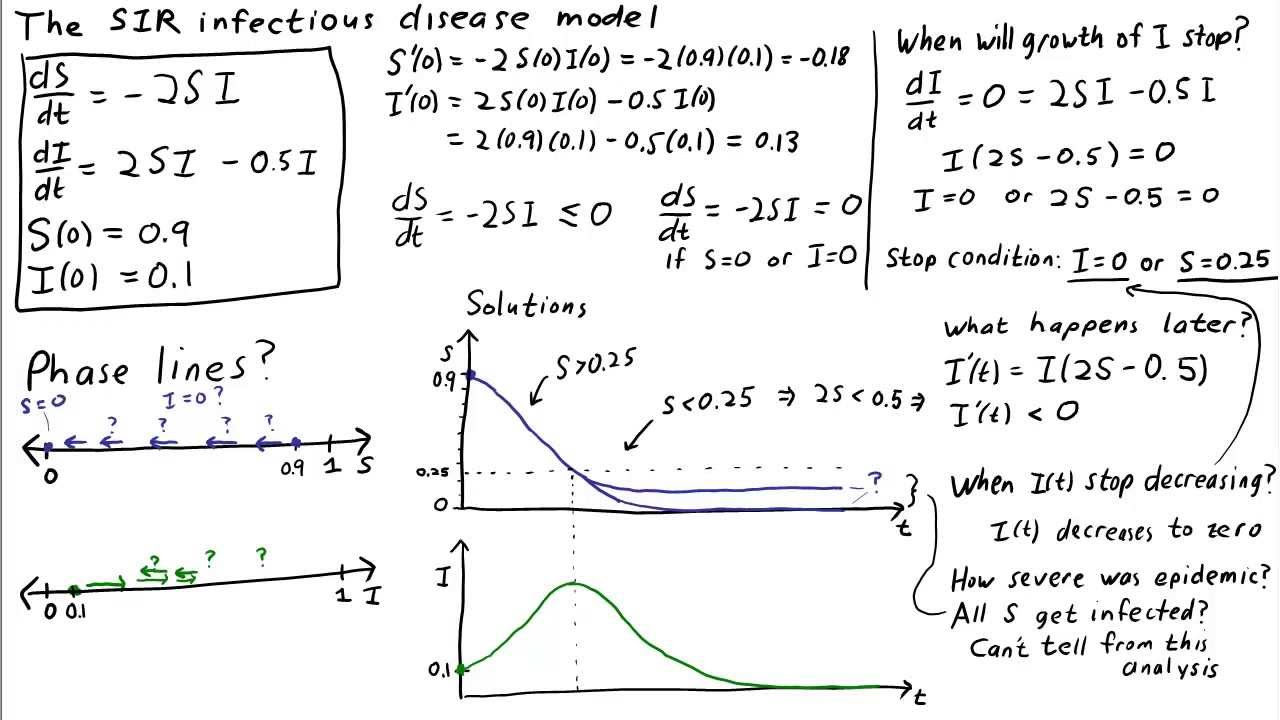 The SIR infectious disease model
dS/dt = -2SI
dI/dt = 2SI - 0.5I
S(0) = 0.9
I(0) = 0.1
S'(0) = -2 S(0) I(0) = -2(0.9)(0.1) = -0.18
I'(0) = 2 S(0) I(0) - 0.5 I(0)
= 2(0.9)(0.1) - 0.5(0.1) = 0.13
dS/dt = -2SI ≤ 0
dS/dt = -2SI = 0
if S=0 or I=0
When will growth of I stop?
dI/dt = 0 = 2SI - 0.5I
I(2S - 0.5) = 0
I=0 or 2S - 0.5 = 0
Stop condition: I=0 or S=0.25
Phase lines?
S=0 I=0?
? ? ? ?
0 0.9 1 S
? ? ?
0 0.1 1 I
Solutions
S
0.9
S>0.25
S<0.25 ⇒ 2S<0.5 ⇒
0.25
?
0
t
I
0.1
t
What happens later?
I'(t) = I(2S - 0.5)
I'(t) < 0
When I(t) stop decreasing?
I(t) decreases to zero
How severe was epidemic?
All S get infected?
Can't tell from this
analysis